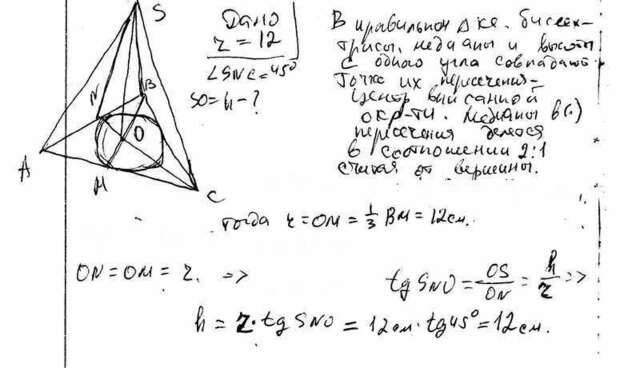 S
Дано
r = 12
∠SNC = 45°
SO = h - ?
В правильном Δ-ке. биссек-
трисы, медианы и высоты
с одного угла совпадают.
Точка их пересечения -
центр вписанной
окр-ти. Медианы в (.)
пересечения делятся
в соотношении 2:1
считая от вершины.
N
B
O
A
M
C
тогда r = OM = 1/3 BM = 12 см.
ON = OM = r. =>
tg SNO = OS/ON = h/r =>
h = r · tg SNO = 12 см · tg 45° = 12 см.